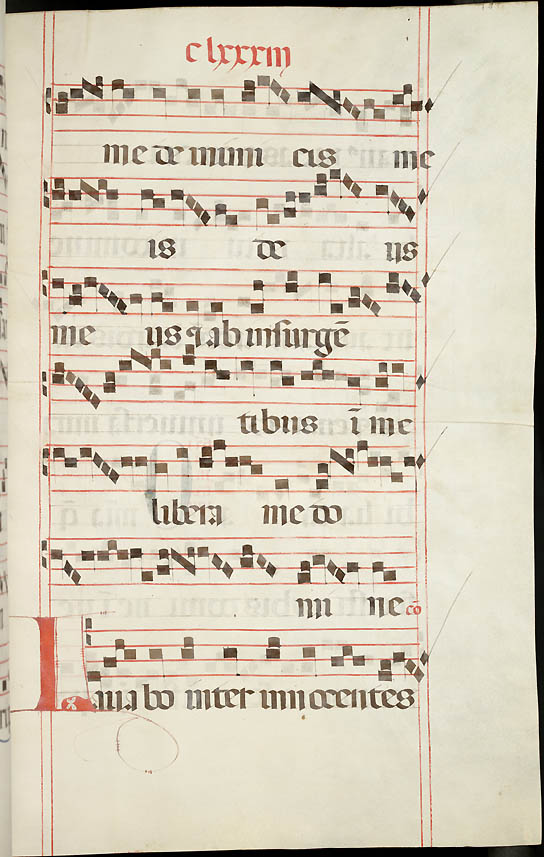 clxxxiij
me de inimi cis me
is de ijs
me ijs ꝗ ab insurgē
tibus ī me
libera me do
mi ne cō
Lauabo inter innocentes